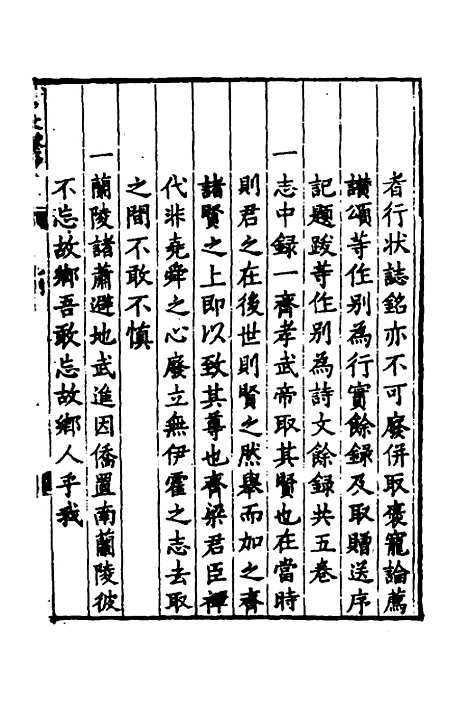 者行狀誌銘亦不可廢併取褒寵論薦
讃頌等作别為行實餘録及取贈送序
記題跋等作别為詩文餘録共五卷
一志中録一齊孝武帝取其賢也在當時
則君之在後世則賢之然舉而加之齊
諸賢之上即以致其尊也齊梁君臣禪
代非堯舜之心廢立無伊霍之志去取
之間不敢不慎
一蘭陵諸蕭避地武進因僑置南蘭陵彼
不忘故鄉吾敢忘故鄉人乎哉